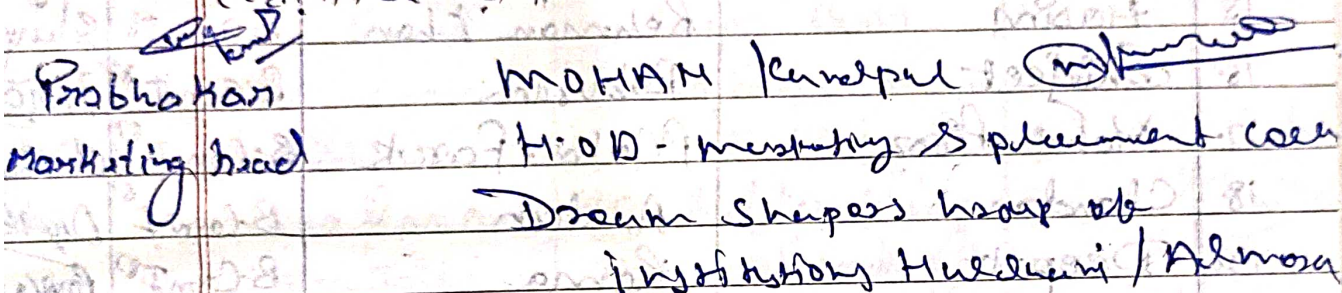 Prabhakar
Marketing head
MOHAN Kandpal
H.O.D - marketing & placement cell
Dream Shapers group of
institutions Haldwani / Almora